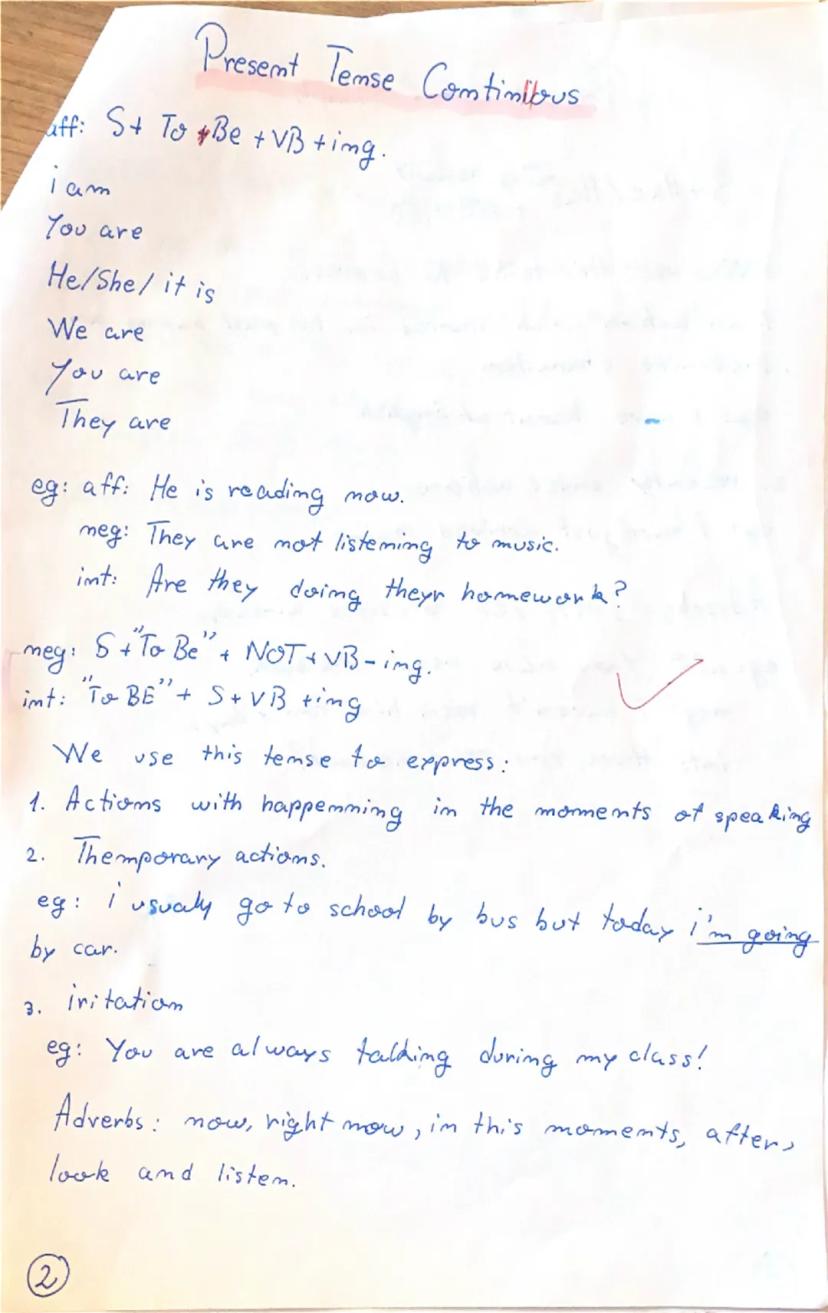 Present Tense Continuous
aff: S+ To Be + VB + ing.
i am
You are
He/She/ it is
We are
You are
They are
eg: aff: He is reading now.
neg: They are not listening to music.
int: Are they doing theyr homework?
neg: S + "To Be" + NOT + VB - ing.
int: "To BE" + S + VB + ing
We use this tense to express:
1. Actions with happenning in the moments of speaking
2. Themporary actions.
eg: i usualy go to school by bus but today i'm going
by car.
3. iritation
eg: You are always talking during my class!
Adverbs: now, right now, in this moments, after,
look and listen.
2